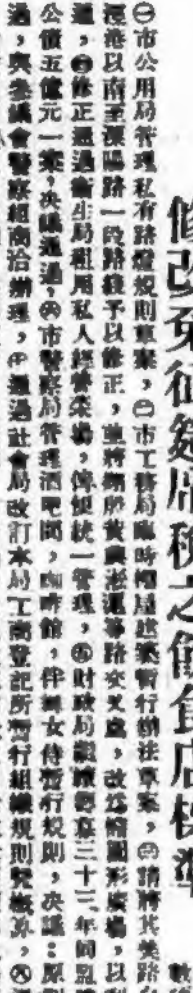 修改免征筵席稅之飲食店標準
㊀市公用局管理私有路燈規則草案，㊁市工務局臨時棚屋建築暫行辦法草案，㊂請將其美路
港以南至溧陽路一段路綫予以修正，並將 黃興 等路交叉處，改為橢圓形廣場，以
過，㊃修正通過衛生局租用私人經營菜場，俾便統一管理，㊄財政局 三十三年同盟
公債五億元一案，決議通過，㊅市警察局管理酒吧間，咖啡館，伴舞女侍暫行規則，決議：原
過，與參議會警察組商洽辦理，㊉通過社會局改訂本局工商登記所暫行組織規則暨概算，